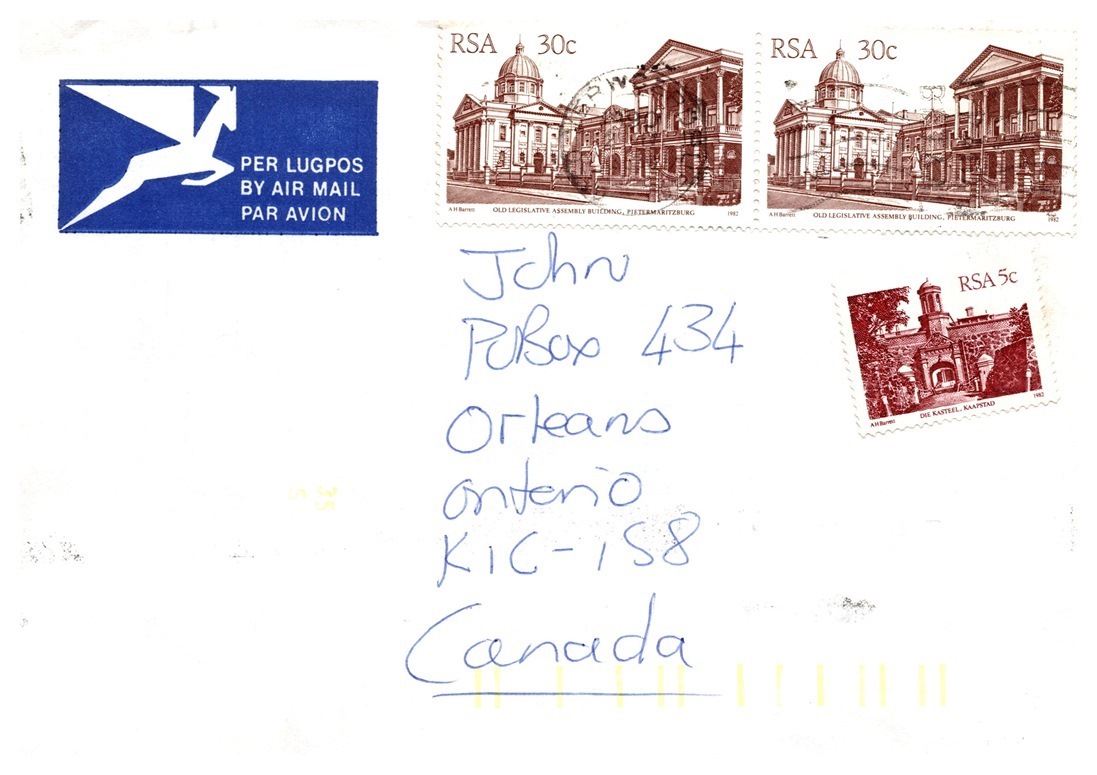 PER LUGPOS
BY AIR MAIL
PAR AVION
RSA 30c
A H Barrett OLD LEGISLATIVE ASSEMBLY BUILDING, PIETERMARITZBURG 1982
RSA 30c
A H Barrett OLD LEGISLATIVE ASSEMBLY BUILDING, PIETERMARITZBURG 1982
RSA 5c
DIE KASTEEL, KAAPSTAD 1982
A H Barrett
John
POBox 434
Orleans
Onterio
K1C-1S8
Canada